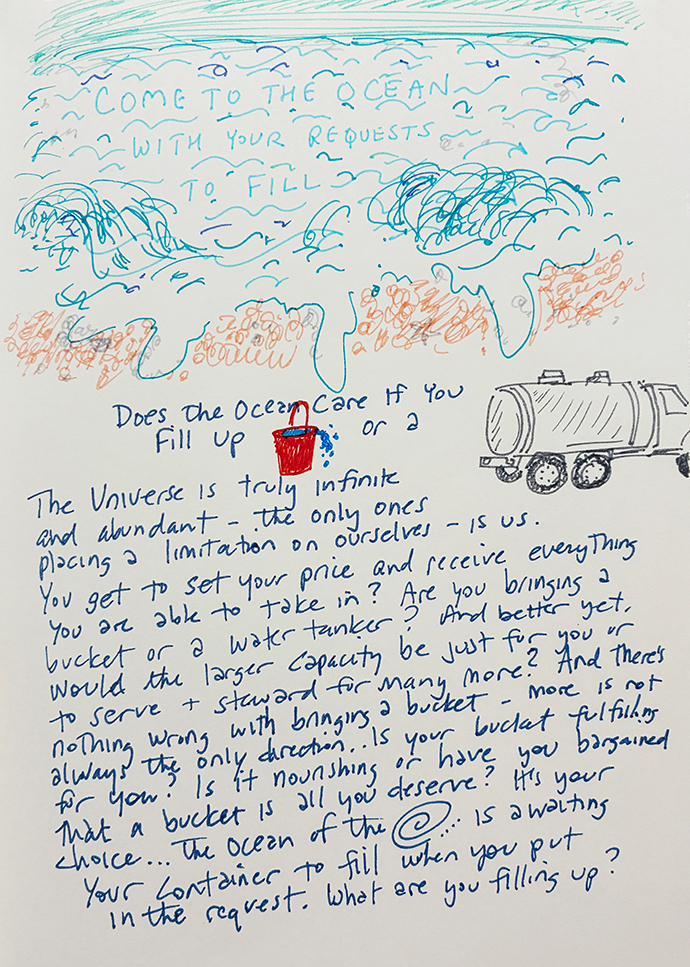 COME TO THE OCEAN
WITH YOUR REQUESTS
TO FILL
Does the Ocean Care If You
Fill up or a
The Universe is truly infinite
and abundant - the only ones
placing a limitation on ourselves - is us.
You get to set your price and receive everything
you are able to take in? Are you bringing a
bucket or a water tanker? And better yet,
would the larger capacity be just for you or
to serve + steward for many more? And there's
nothing wrong with bringing a bucket - more is not
always the only direction... Is your bucket fulfilling
for you? Is it nourishing or have you bargained
that a bucket is all you deserve? It's your
choice... The Ocean of the .... is awaiting
Your container to fill when you put
in the request. What are you filling up?